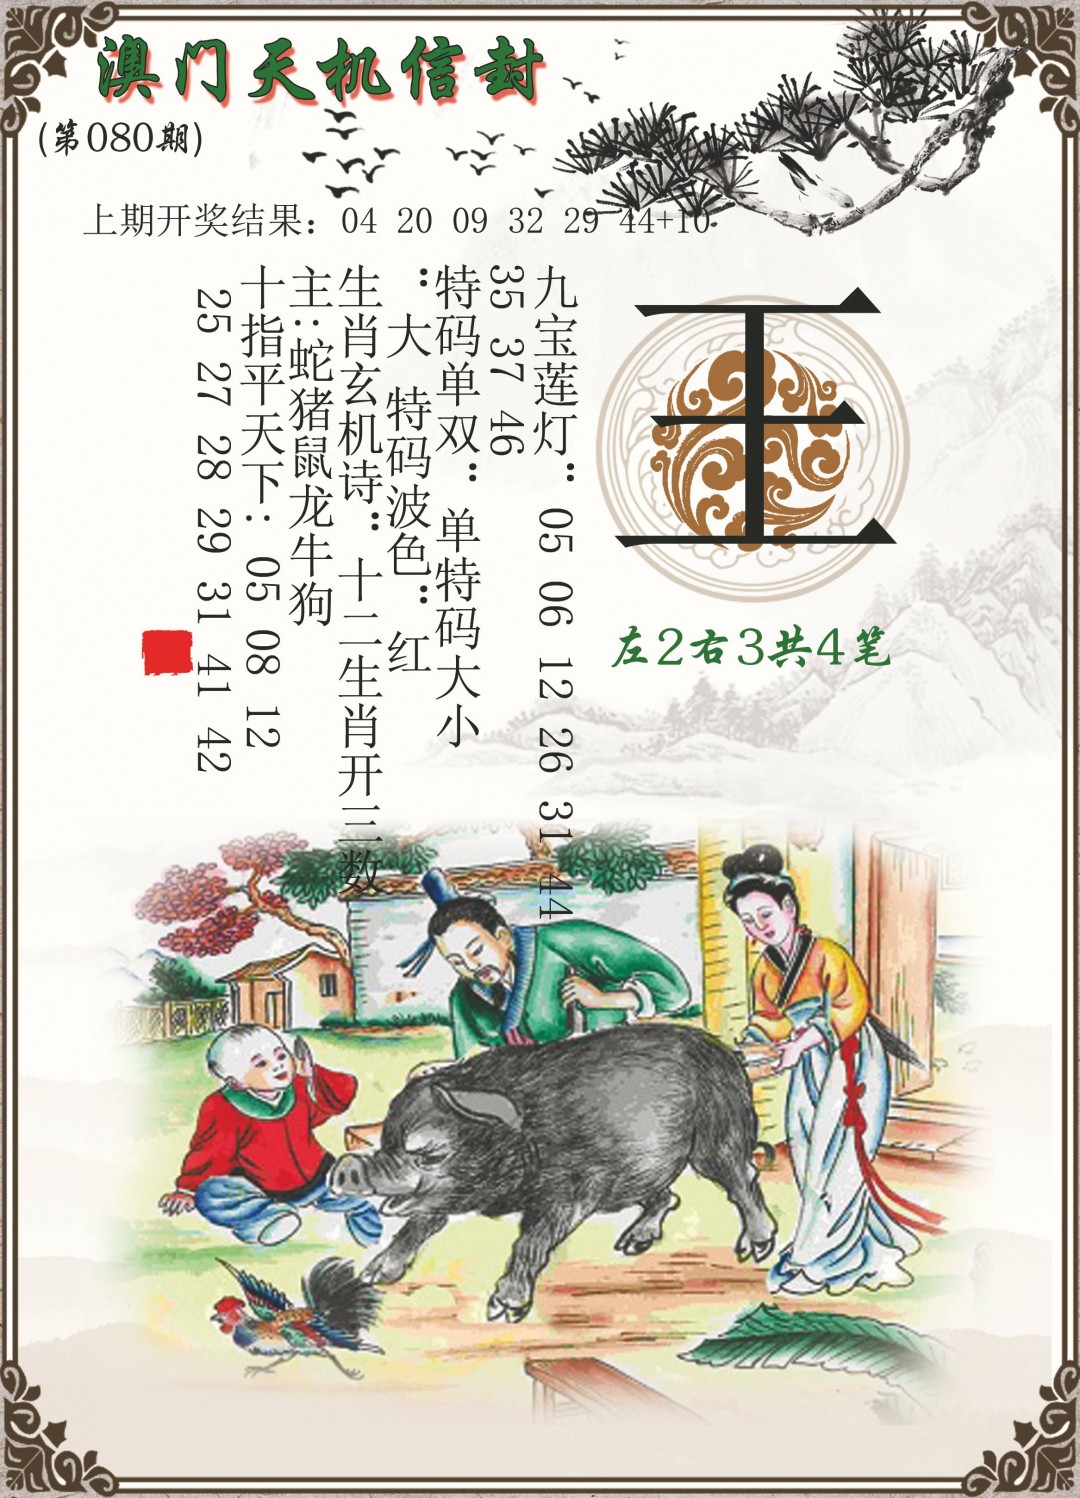 澳门天机信封
(第080期)
上期开奖结果：04 20 09 32 29 44+10
九宝莲灯：05 06 12 26 31 44
35 37 46
特码单双：单特码大小
：大 特码波色：红
生肖玄机诗：十二生肖开三数
主：蛇猪鼠龙牛狗
十指平天下：05 08 12
25 27 28 29 31 41 42
王
左2右3共4笔